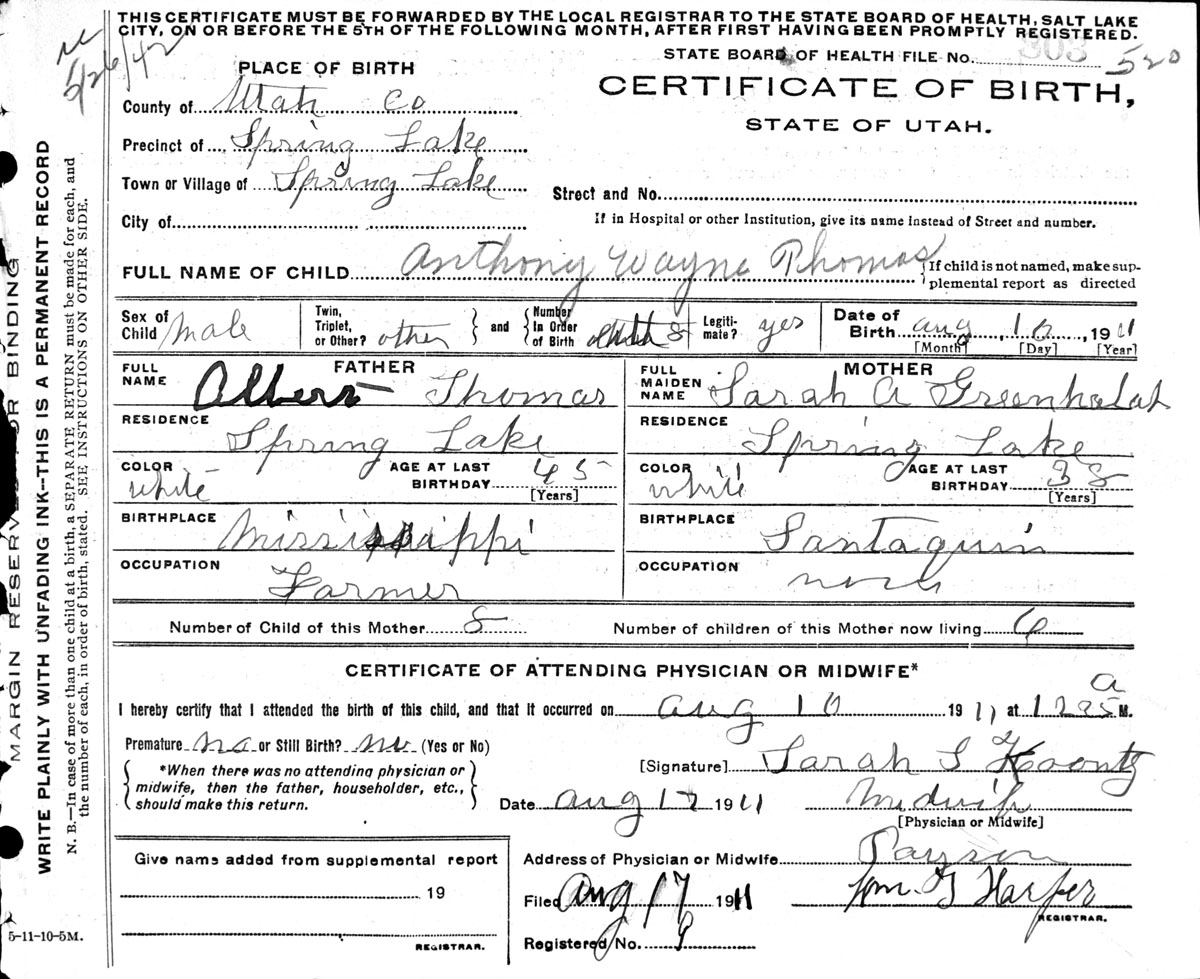 THIS CERTIFICATE MUST BE FORWARDED BY THE LOCAL REGISTRAR TO THE STATE BOARD OF HEALTH, SALT LAKE
CITY, ON OR BEFORE THE 5TH OF THE FOLLOWING MONTH, AFTER FIRST HAVING BEEN PROMPTLY REGISTERED.
5/26/42
STATE BOARD OF HEALTH FILE No. 303 520
PLACE OF BIRTH
CERTIFICATE OF BIRTH,
STATE OF UTAH.
County of Utah Co
Precinct of Spring Lake
Town or Village of Spring Lake
Street and No.
City of
If in Hospital or other Institution, give its name instead of Street and number.
FULL NAME OF CHILD Anthony Wayne Thomas
If child is not named, make sup-
plemental report as directed
Sex of Child Male
Twin, Triplet, or Other? other
and
Number In Order of Birth 8
Legiti-mate? yes
Date of Birth Aug 16, 1911
[Month] [Day] [Year]
FATHER
FULL NAME Albert Thomas
RESIDENCE Spring Lake
COLOR white
AGE AT LAST BIRTHDAY 45
[Years]
BIRTHPLACE Mississippi
OCCUPATION Farmer
MOTHER
FULL MAIDEN NAME Sarah A Greenhalgh
RESIDENCE Spring Lake
COLOR white
AGE AT LAST BIRTHDAY 38
[Years]
BIRTHPLACE Santaquin
OCCUPATION
Number of Child of this Mother 8
Number of children of this Mother now living 6
CERTIFICATE OF ATTENDING PHYSICIAN OR MIDWIFE*
I hereby certify that I attended the birth of this child, and that it occurred on Aug 16 1911 at 1225 a M.
Premature No or Still Birth? No (Yes or No)
*When there was no attending physician or
midwife, then the father, householder, etc.,
should make this return.
[Signature] Sarah S Koontz
Date Aug 17 1911
Midwife
[Physician or Midwife]
Give name added from supplemental report
19
REGISTRAR.
Address of Physician or Midwife Payson
Filed Aug 17 1911
Wm. G Harper
REGISTRAR.
Registered No. 9
5-11-10-5M.
MARGIN RESERVED FOR BINDING
WRITE PLAINLY WITH UNFADING INK--THIS IS A PERMANENT RECORD
N. B.—In case of more than one child at a birth a SEPARATE RETURN must be made for each, and
the number of each, in order of birth, stated. SEE INSTRUCTIONS ON OTHER SIDE.